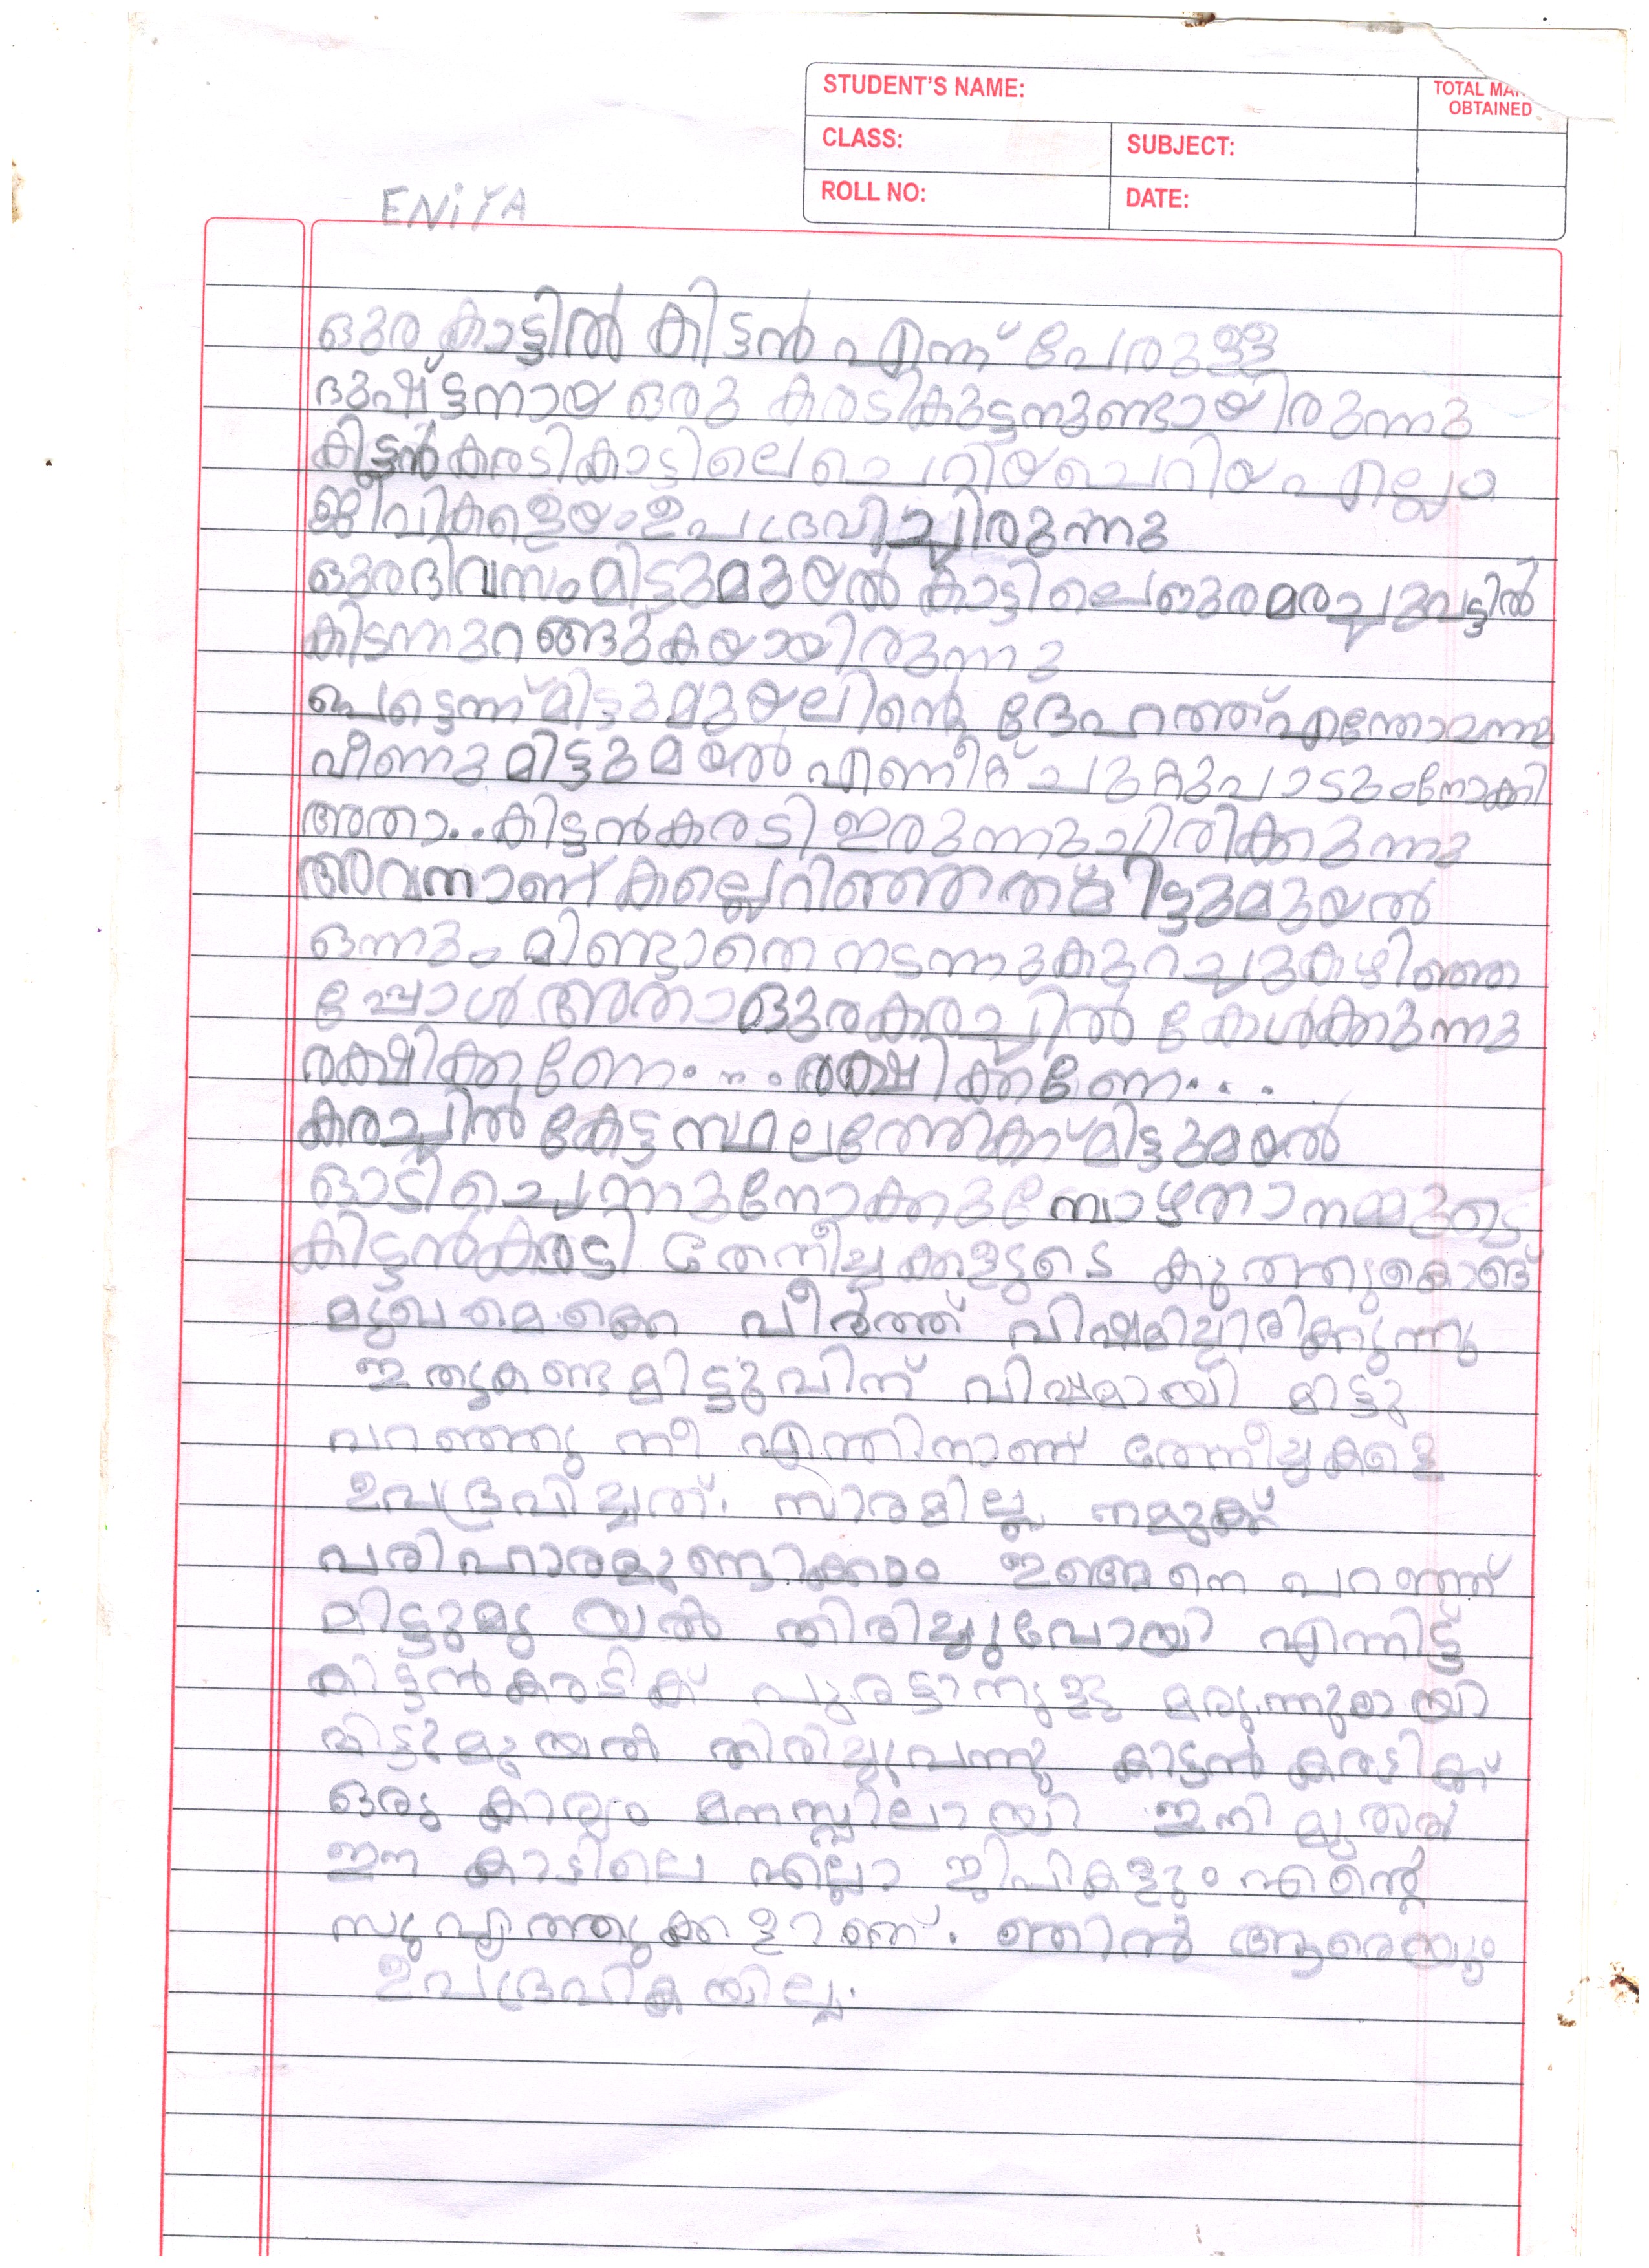 STUDENT'S NAME:
TOTAL MAR
OBTAINED
CLASS:
SUBJECT:
ROLL NO:
DATE:
ENiYA
ഒരു കാട്ടിൽ കിട്ടൻ എന്ന് പേരുള്ള
ദുഷ്ട്ടനായ ഒരു കരടികുട്ടനുണ്ടായിരുന്നു
കിട്ടൻകരടികാട്ടിലെചെറിയചെറിയ എല്ലാ
ജീവികളെയം ഉപദ്രവിച്ചിരുന്നു
ഒരുദിവസം മിട്ടുമുയൽ കാട്ടിലെഒരു മരച്ചുവട്ടിൽ
കിടന്നുറങ്ങുകയായിരുന്നു
പെട്ടെന്ന് മിട്ടുമുയലിന്റെ ദേഹത്ത് എന്തോവന്നു
വീണു മിട്ടുമയൽ എണീറ്റ് ചുറ്റുപാടും നോക്കി
അതാ..കിട്ടൻകരടി ഇരുന്നുചിരിക്കുന്നു
അവനാണ് കല്ലെറിഞ്ഞത് മിട്ടുമുയൽ
ഒന്നും മിണ്ടാതെ നടന്നു കുറച്ചുകഴിഞ്ഞ
പ്പോൾ അതാ ഒരു കരച്ചിൽ കേൾക്കുന്നു
രക്ഷിക്കണേ.... രക്ഷിക്കണേ...
കരച്ചിൽ കേട്ട സ്ഥലത്തേക്ക് മിട്ടുമയൽ
ഓടി ചെന്നുനോക്കുമ്പോഴതാ നമ്മുടെ
കിട്ടൻകരടി തേനീച്ചക്കളുടെ കുത്തുകൊണ്ട്
മുഖമൊക്കെ വീർത്ത് വിഷമിച്ചിരിക്കുന്നു
ഇതുകണ്ട മിട്ടുവിന് വിഷമായി മിട്ടു
പറഞ്ഞു നീ എന്തിനാണ് തേനീച്ചകളെ
ഉപദ്രവിച്ചത്. സാരമില്ല നമുക്ക്
പരിഹാരമുണ്ടാക്കാം ഇങ്ങനെ പറഞ്ഞ്
മിട്ടുമുയൽ തിരിച്ചുപോയി എന്നിട്ട്
കിട്ടൻകരടിക്ക് പുരട്ടാനുള്ള മരുന്നുമായി
മിട്ടുമുയൽ തിരിച്ചുവന്നു കിട്ടൻ കരടിക്ക്
ഒരു കാര്യം മനസ്സിലായി ഇനി മുതൽ
ഈ കാട്ടിലെ എല്ലാ ജീവികളും എന്റെ
സുഹൃത്തുക്കളാണ്. ഞാൻ ആരെയും
ഉപദ്രവിക്കയില്ല.